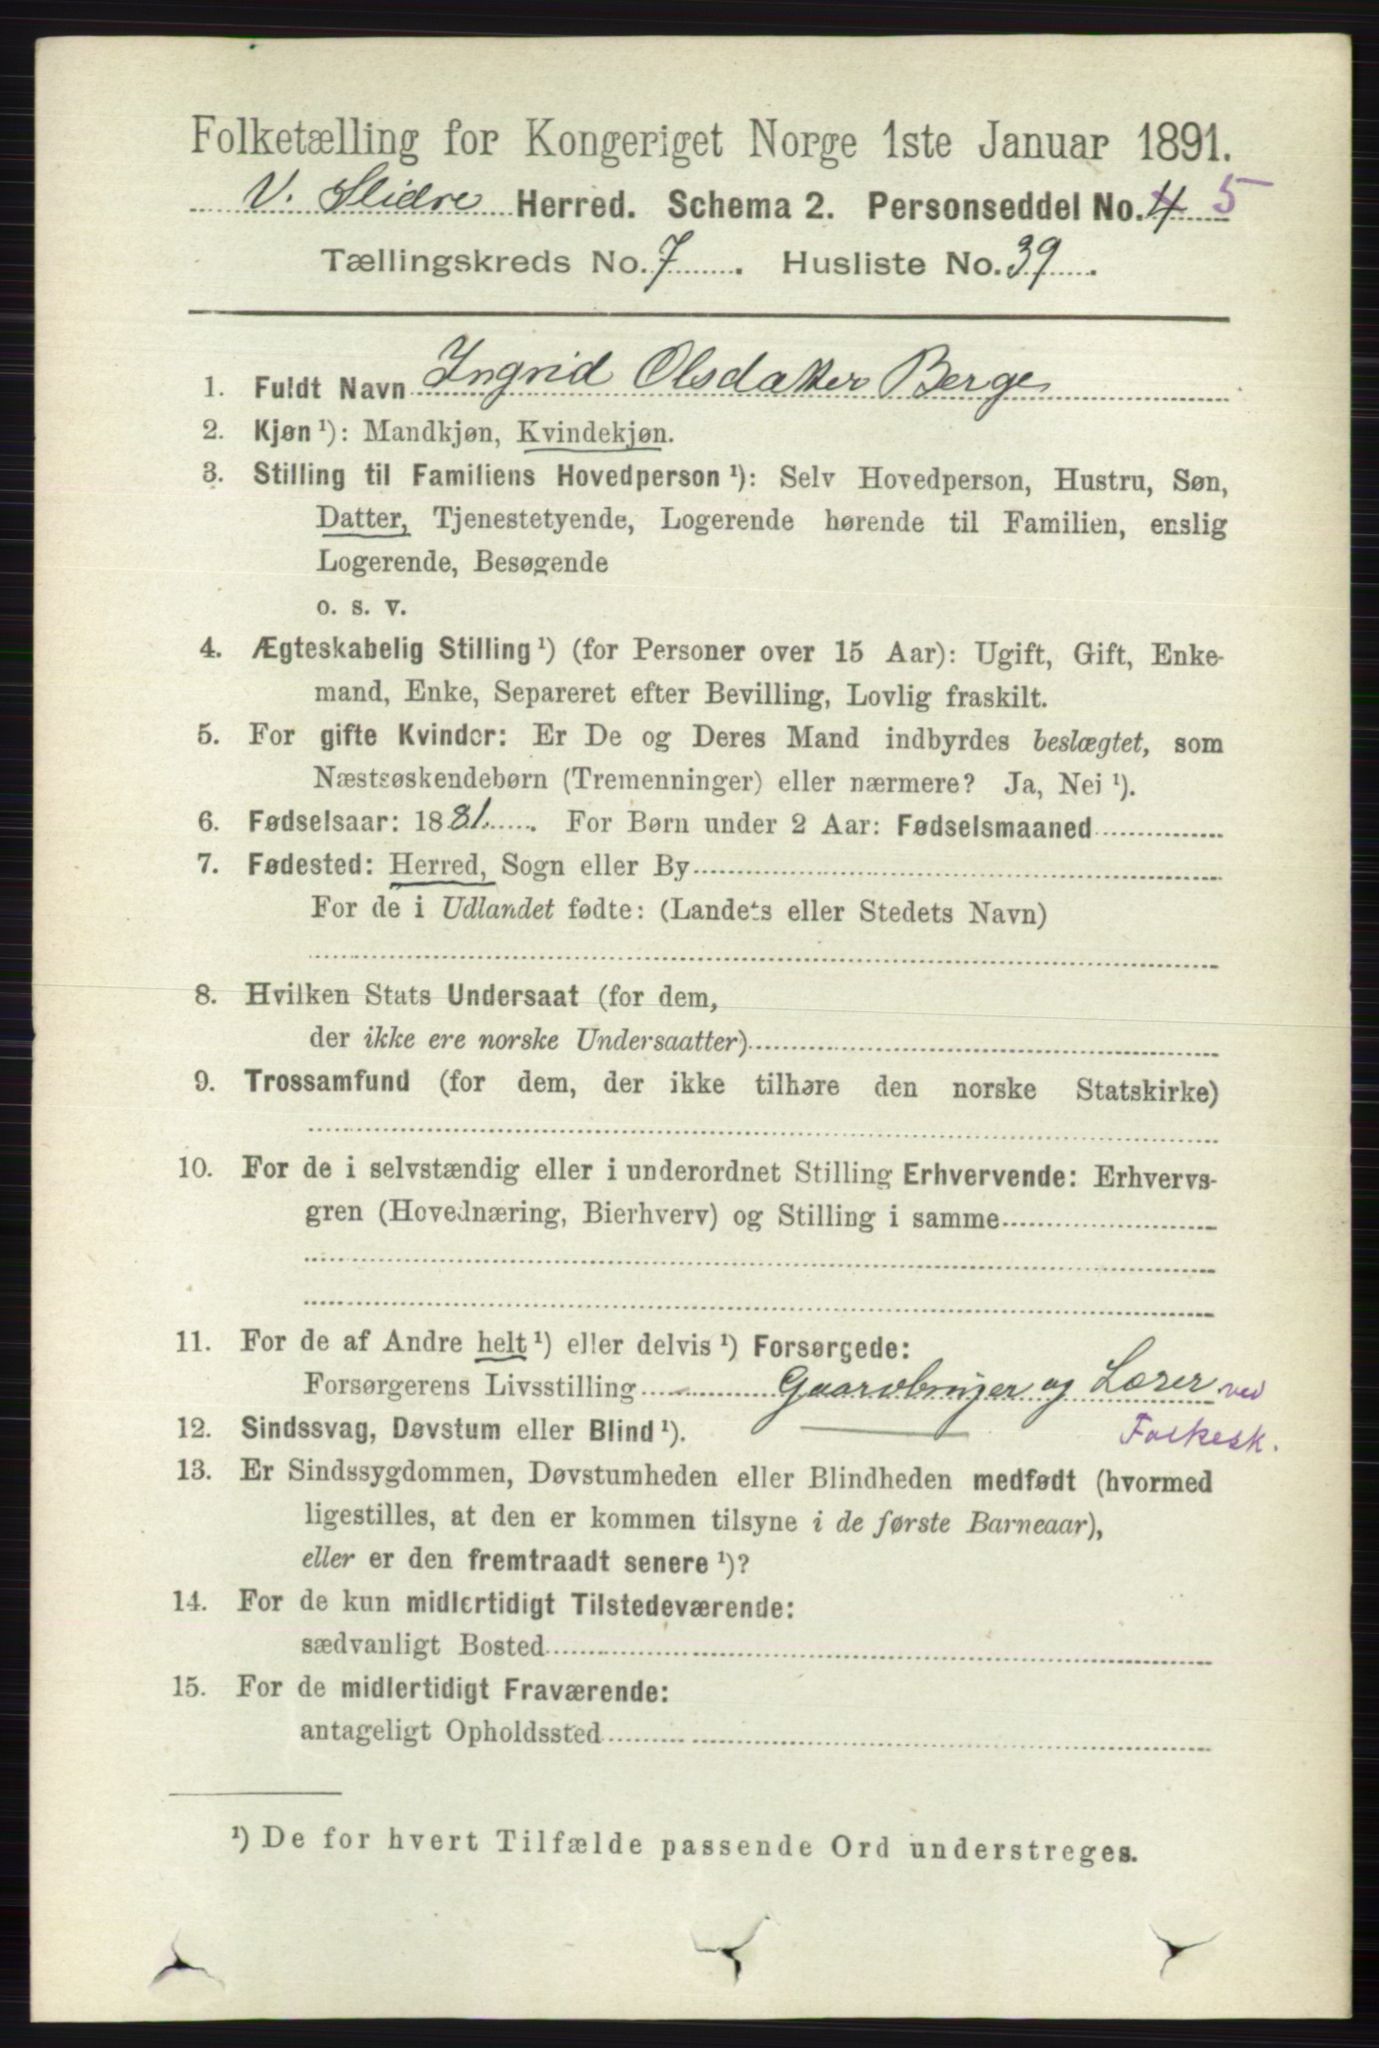 Folketælling for Kongeriget Norge 1ste Januar 1891.
V. Slidre Herred. Schema 2. Personseddel No. 4 5
Tællingskreds No. 7. Husliste No. 39.
1. Fuldt Navn Ingrid Olsdatter Berge
2. Kjøn ¹): Mandkjøn, Kvindekjøn.
3. Stilling til Familiens Hovedperson ¹): Selv Hovedperson, Hustru, Søn,
Datter, Tjenestetyende, Logerende hørende til Familien, enslig
Logerende, Besøgende
o. s. v.
4. Ægteskabelig Stilling ¹) (for Personer over 15 Aar): Ugift, Gift, Enke-
mand, Enke, Separeret efter Bevilling, Lovlig fraskilt.
5. For gifte Kvinder: Er De og Deres Mand indbyrdes beslægtet, som
Næstsøskendebørn (Tremenninger) eller nærmere? Ja, Nei ¹).
6. Fødselsaar: 1881. For Børn under 2 Aar: Fødselsmaaned
7. Fødested: Herred, Sogn eller By
For de i Udlandet fødte: (Landets eller Stedets Navn)
8. Hvilken Stats Undersaat (for dem,
der ikke ere norske Undersaatter)
9. Trossamfund (for dem, der ikke tilhøre den norske Statskirke)
10. For de i selvstændig eller i underordnet Stilling Erhvervende: Erhvervs-
gren (Hovednæring, Bierhverv) og Stilling i samme
11. For de af Andre helt ¹) eller delvis ¹) Forsørgede:
Forsørgerens Livsstilling Gaardbruger og Lærer ved
Folkesk.
12. Sindssvag, Døvstum eller Blind ¹).
13. Er Sindssygdommen, Døvstumheden eller Blindheden medfødt (hvormed
ligestilles, at den er kommen tilsyne i de første Barneaar),
eller er den fremtraadt senere ¹)?
14. For de kun midlertidigt Tilstedeværende:
sædvanligt Bosted
15. For de midlertidigt Fraværende:
antageligt Opholdssted
¹) De for hvert Tilfælde passende Ord understreges.